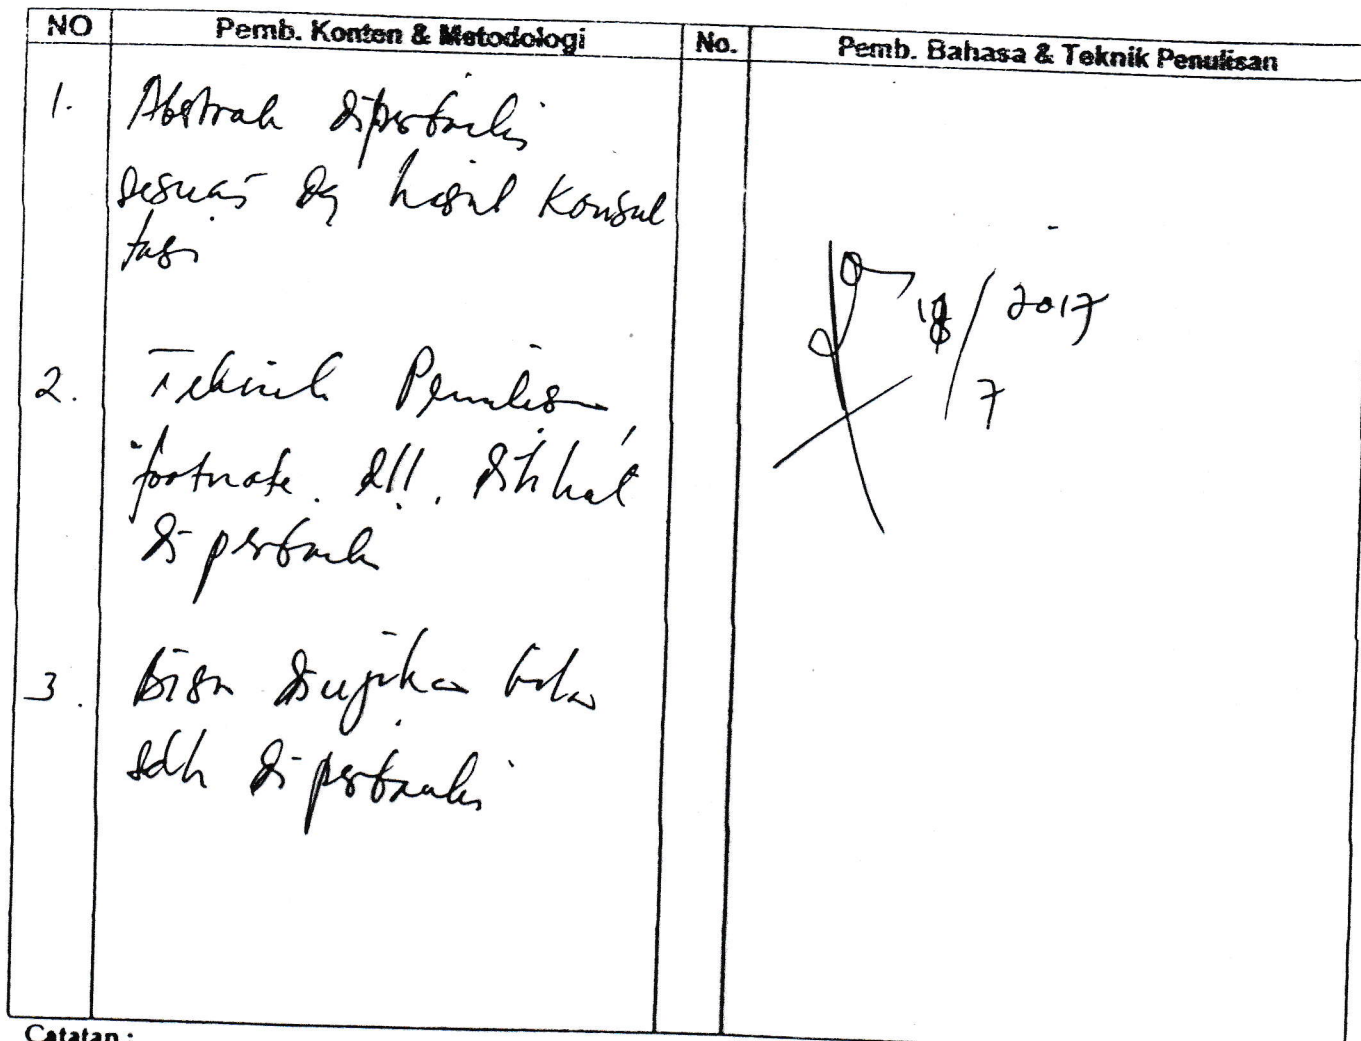 NO Pemb. Konten & Metodologi No. Pemb. Bahasa & Teknik Penulisan
1. Abstrak diperbaiki
sesuai dg hasil Konsul
tasi
18/7 2017
2. Teknik Penulisan,
footnote. dll. dilihat
diperbaiki
3. Bisa diujikan bila
sdh diperbaiki
Catatan :